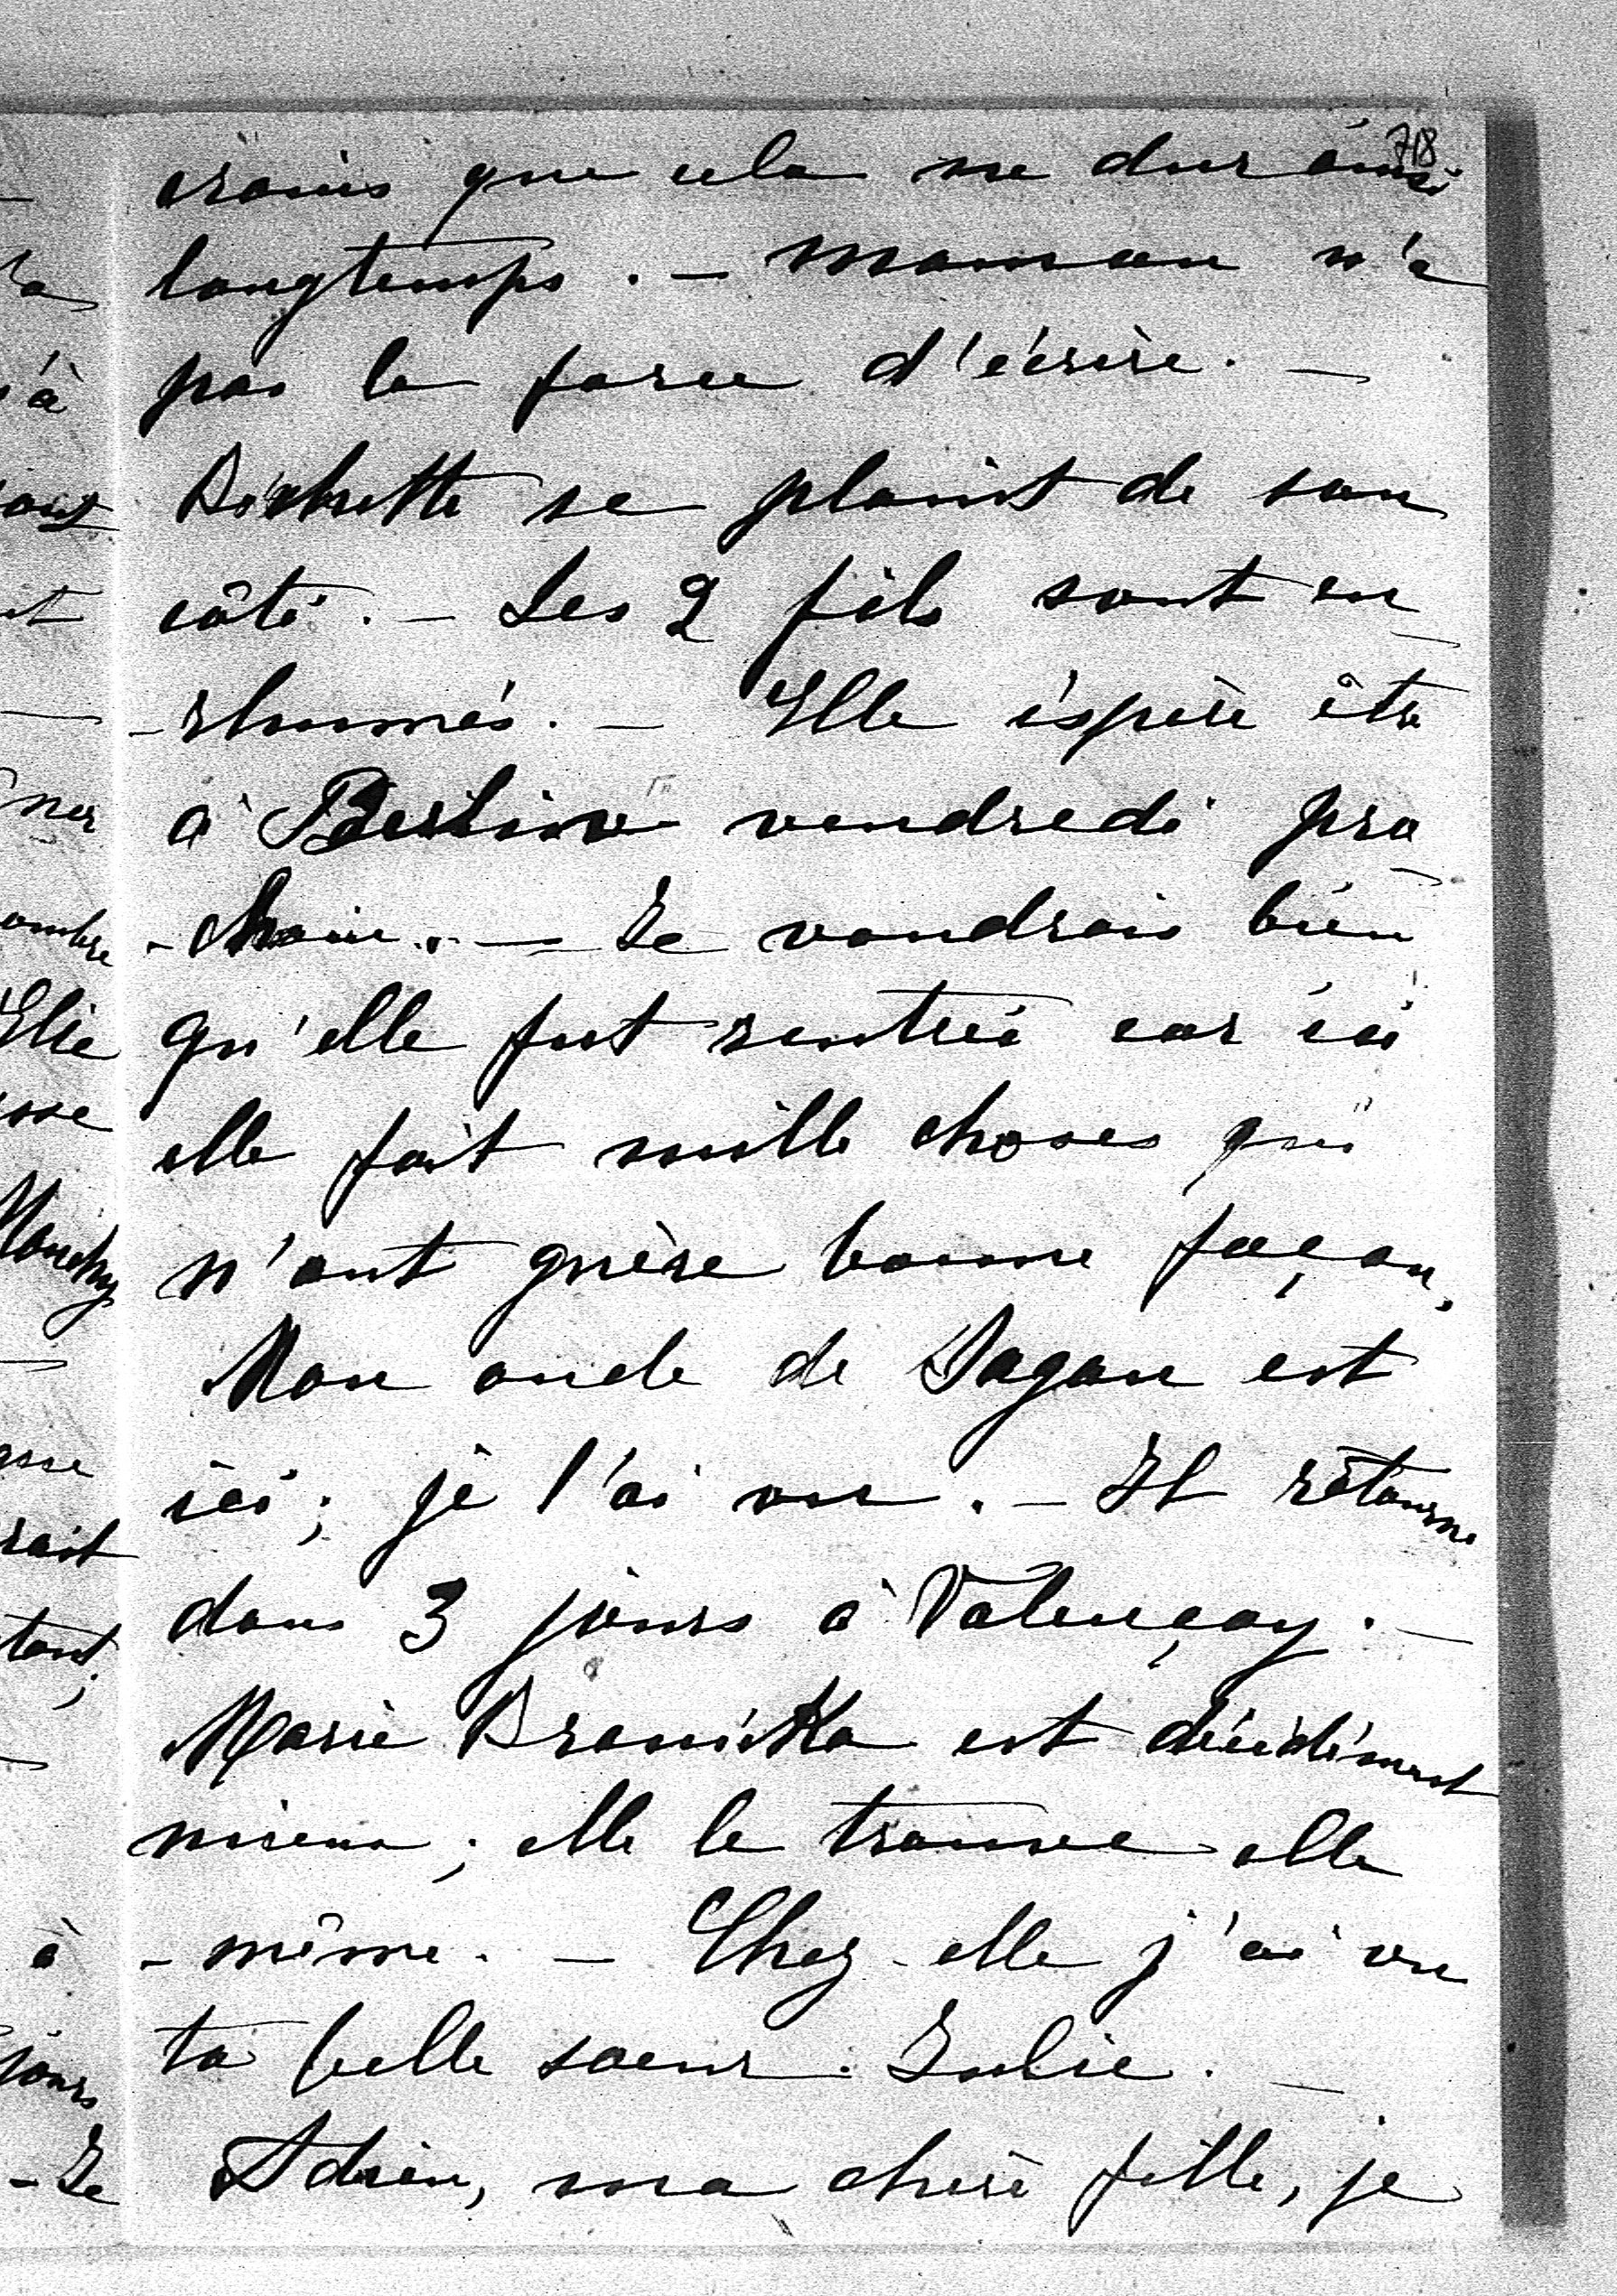 718
crains que cela ne dure ainsi
longtemps. — Maman n'a
pas la force d'écrire. —
Bichette se plaint de son
côté. — Les 2 fils sont en
-rhumés. — Elle espère être
à Berlin vendredi pro
-chain. — Je voudrais bien
qu'elle fut rentrée car ici
elle fait mille choses qui
n'ont guère bonne façon.
Mon oncle de Sagan est
ici; je l'ai vu. — Il retourne
dans 3 jours à Valençay. —
Marie Branicka est décidément
mieux; elle le trouve elle
-même. — Chez elle j'ai vu
ta belle soeur Julie. —
Adieu, ma chère fille, je